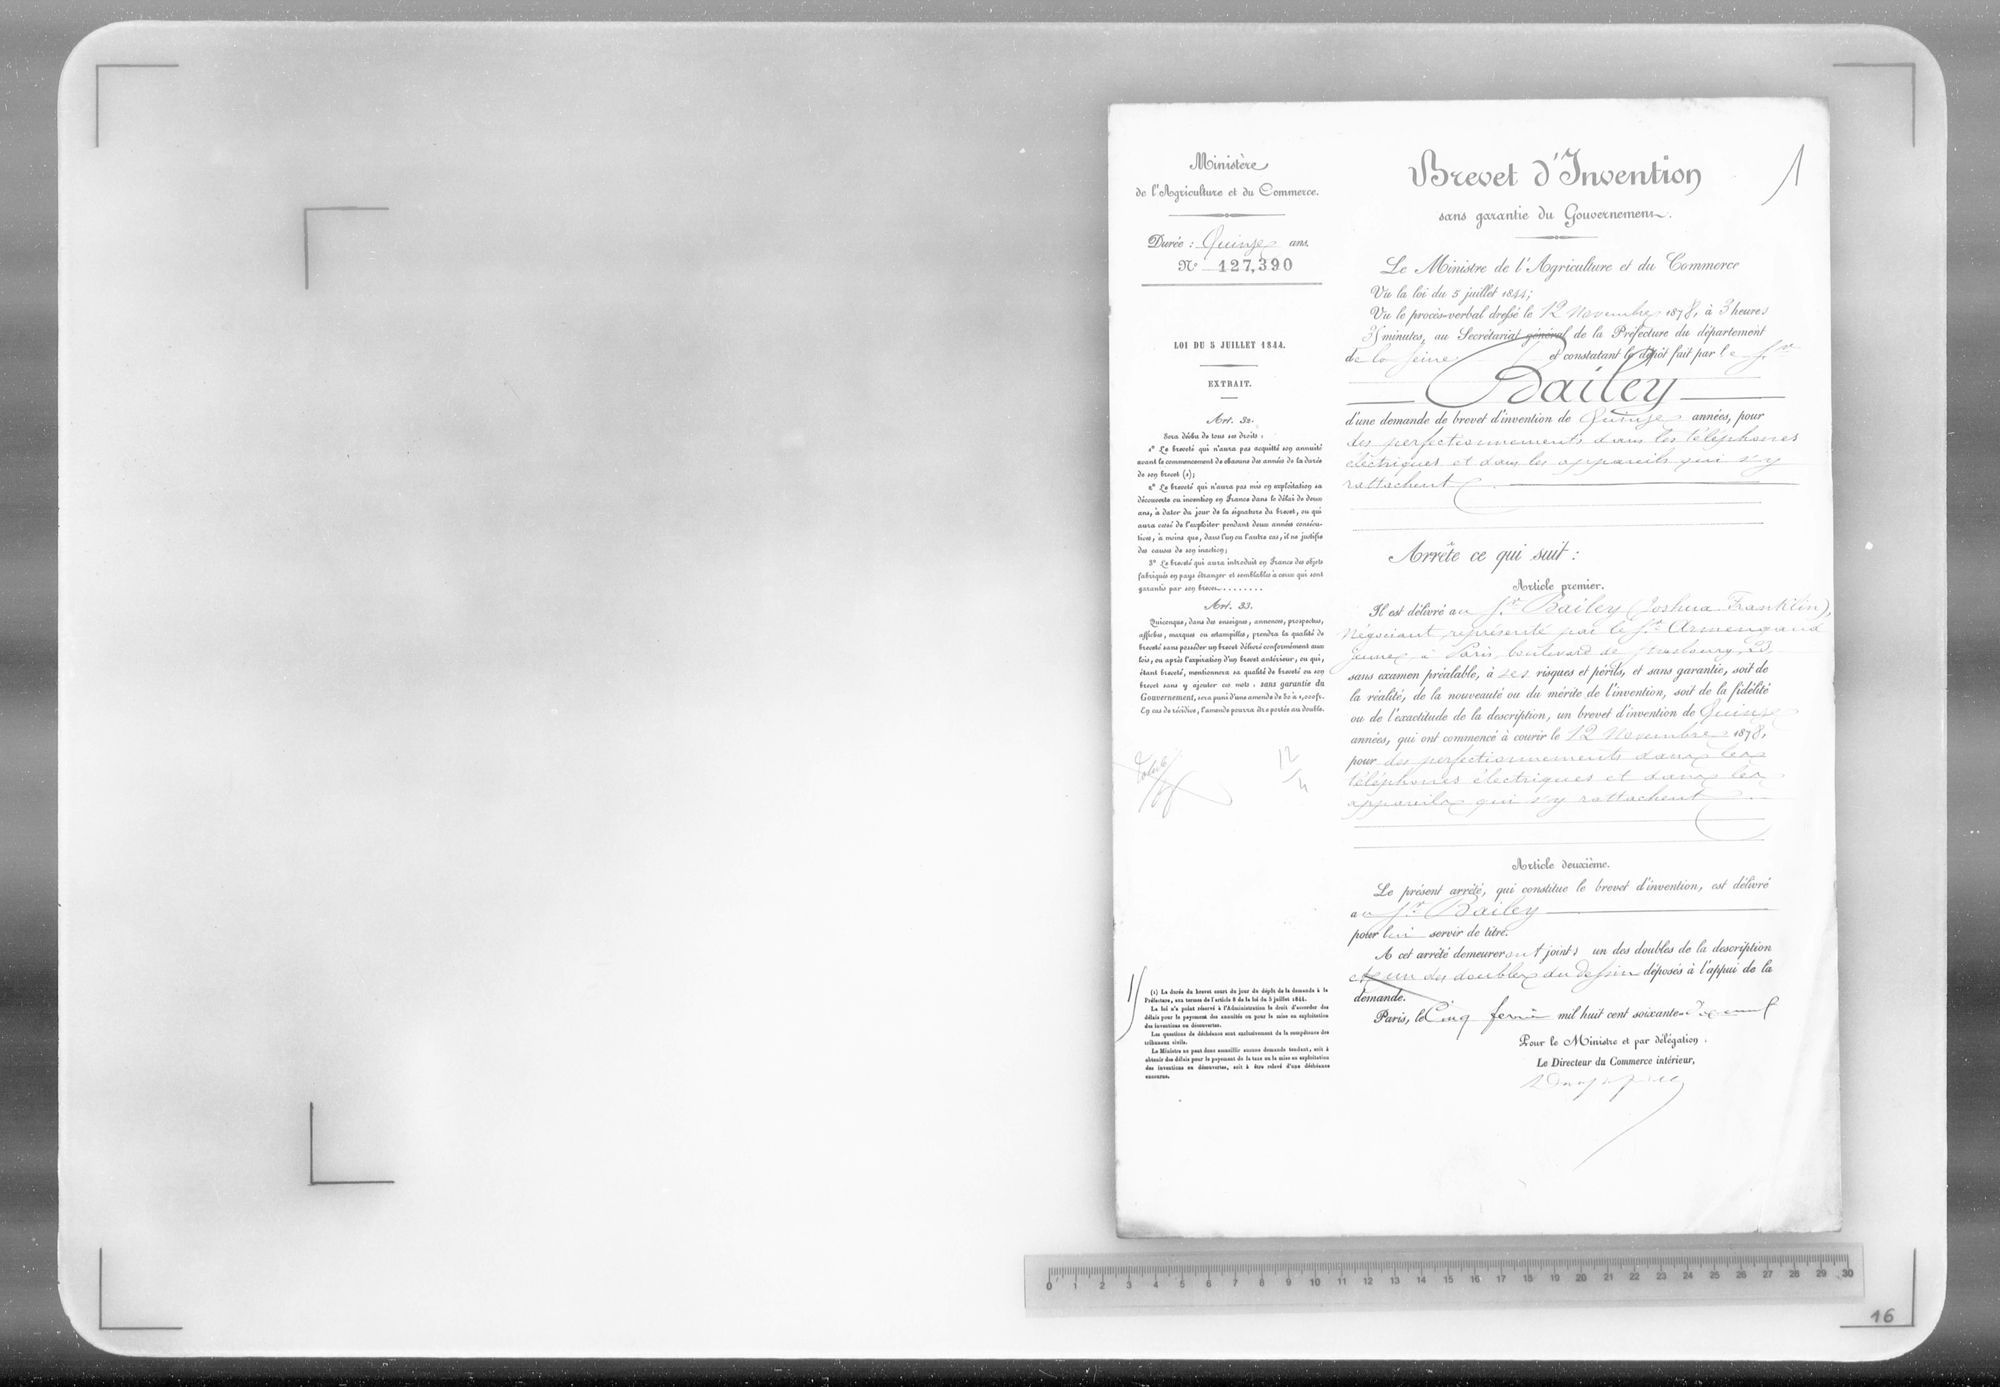 Ministère
de l'Agriculture et du Commerce.
Durée : Quinze ans.
N° 127,390
LOI DU 5 JUILLET 1844.
EXTRAIT.
Art. 32.
Sera déchu de tous ses droits :
1° Le breveté qui n'aura pas acquitté son annuité
avant le commencement de chacune des années de la durée
de son brevet (1);
2° Le breveté qui n'aura pas mis en exploitation sa
découverte ou invention en France dans le délai de deux
ans, à dater du jour de la signature du brevet, ou qui
aura cessé de l'exploiter pendant deux années consécu-
tives, à moins que, dans l'un ou l'autre cas, il ne justifie
des causes de son inaction;
3° Le breveté qui aura introduit en France des objets
fabriqués en pays étranger et semblables à ceux qui sont
garantis par son brevet........
Art. 33.
Quiconque, dans des enseignes, annonces, prospectus,
affiches, marques ou estampilles, prendra la qualité de
breveté sans posséder un brevet délivré conformément aux
lois, ou après l'expiration d'un brevet antérieur, ou qui,
étant breveté, mentionnera sa qualité de breveté ou son
brevet sans y ajouter ces mots : sans garantie du
Gouvernement, sera puni d'une amende de 50 à 1,000 fr.
En cas de récidive, l'amende pourra être portée au double.
12
(1) La durée du brevet court du jour du dépôt de la demande à la
Préfecture, aux termes de l'article 8 de la loi du 5 juillet 1844.
La loi n'a point réservé à l'Administration le droit d'accorder des
délais pour le payement des annuités ou pour la mise en exploitation
des inventions ou découvertes.
Les questions de déchéance sont exclusivement de la compétence des
tribunaux civils.
Le Ministre ne peut donc accueillir aucune demande tendant, soit à
obtenir des délais pour le payement de la taxe ou la mise en exploitation
des inventions ou découvertes, soit à être relevé d'une déchéance
encourue.
Brevet d'Invention
1
sans garantie du Gouvernement.
Le Ministre de l'Agriculture et du Commerce
Vu la loi du 5 juillet 1844;
Vu le procès-verbal dressé le 12 Novembre 1878, à 3 heures
35 minutes, au Secrétariat général de la Préfecture du département
de la Seine et constatant le dépôt fait par le Sr
Bailey
d'une demande de brevet d'invention de Quinze années, pour
des perfectionnements dans les téléphones
électriques et dans les appareils qui s'y
rattachent
Arrête ce qui suit :
Article premier.
Il est délivré au Sr Bailey (Joshua Franklin),
négociant, représenté par le Sr Armengaud
jeune, à Paris, boulevard de Strasbourg, 23
sans examen préalable, à ses risques et périls, et sans garantie, soit de
la réalité, de la nouveauté ou du mérite de l'invention, soit de la fidélité
ou de l'exactitude de la description, un brevet d'invention de Quinze
années, qui ont commencé à courir le 12 Novembre 1878,
pour des perfectionnements dans les
téléphones électriques et dans les
appareils qui s'y rattachent
Article deuxième.
Le présent arrêté, qui constitue le brevet d'invention, est délivré
au Sr Bailey
pour lui servir de titre.
A cet arrêté demeureront joints un des doubles de la description
et un des doubles du dessin déposés à l'appui de la
demande.
Paris, le Cinq février mil huit cent soixante-dix-neuf
Pour le Ministre et par délégation.
Le Directeur du Commerce intérieur,
0 1 2 3 4 5 6 7 8 9 10 11 12 13 14 15 16 17 18 19 20 21 22 23 24 25 26 27 28 29 30
16